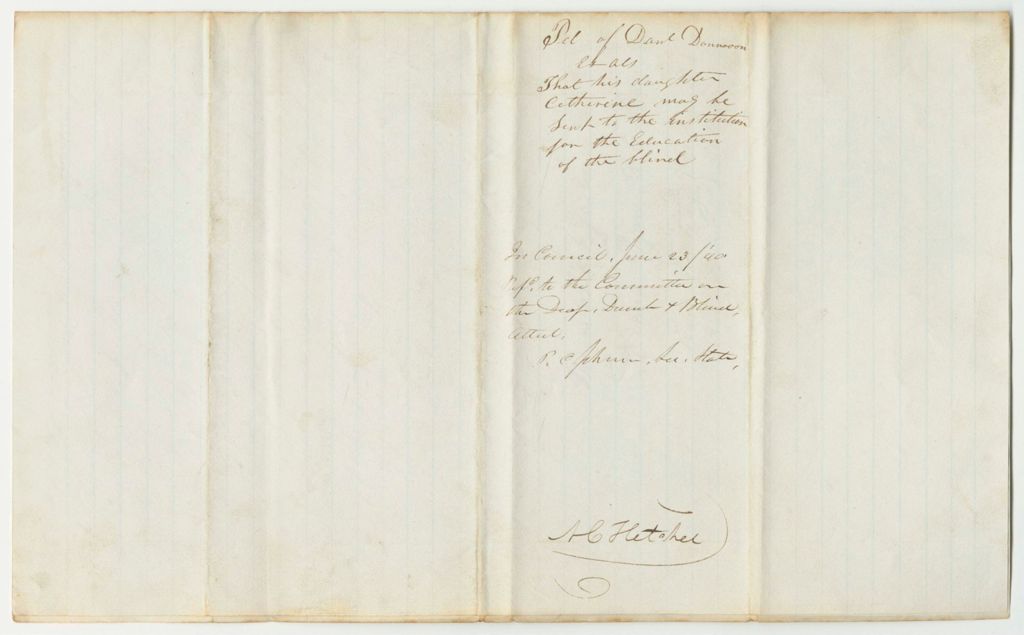 Pet of Danl Donnovon
et als
That his daughter
Catherine may be
Sent to the institution
for the Education
of the blind
In Council, June 23/40
Refd. to the Committee on
the Deaf, Dumb & Blind,
Attest,
P. C. Johnson, Sec. State,
A C Fletcher